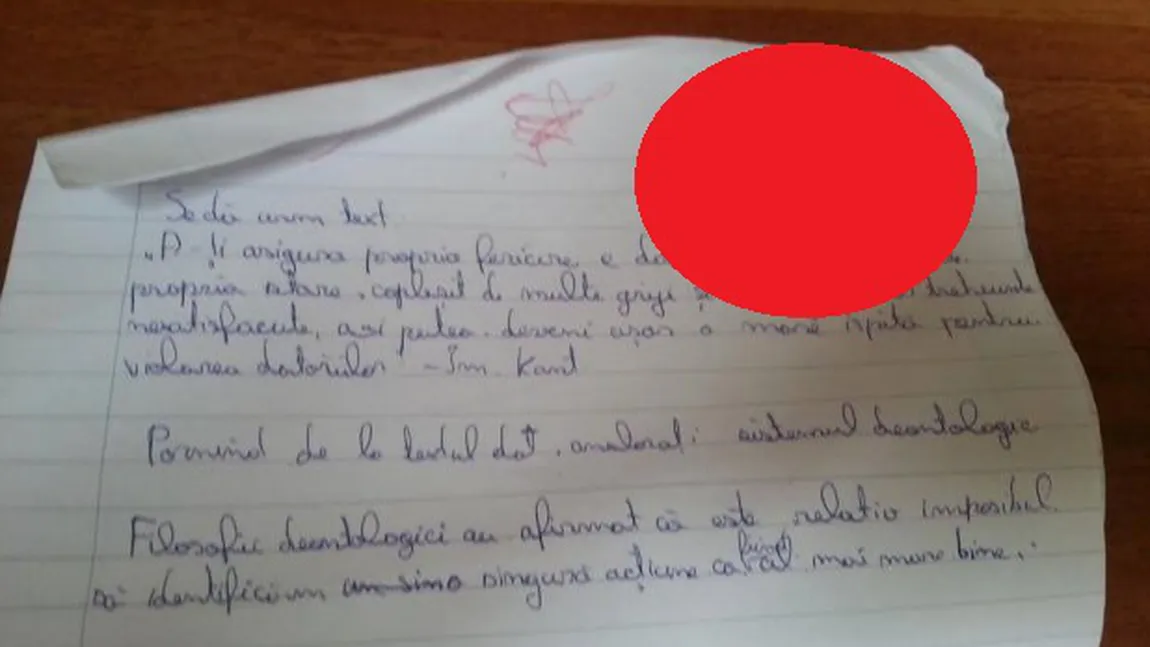 Se dă urm text
„A-ți asigura propria fericire e
propria stare, copleșit de multe griji trebuințe
nesatisfacute, ași putea deveni ușor o mare ispită pentru
violarea datoriilor" - Im. Kant
Pornind de la textul dat, analizați sistemul deontologic
Filosofii deontologici au afirmat că este relativ imposibil
să identificăm singura acțiune ca fiind cel mai mare bine.